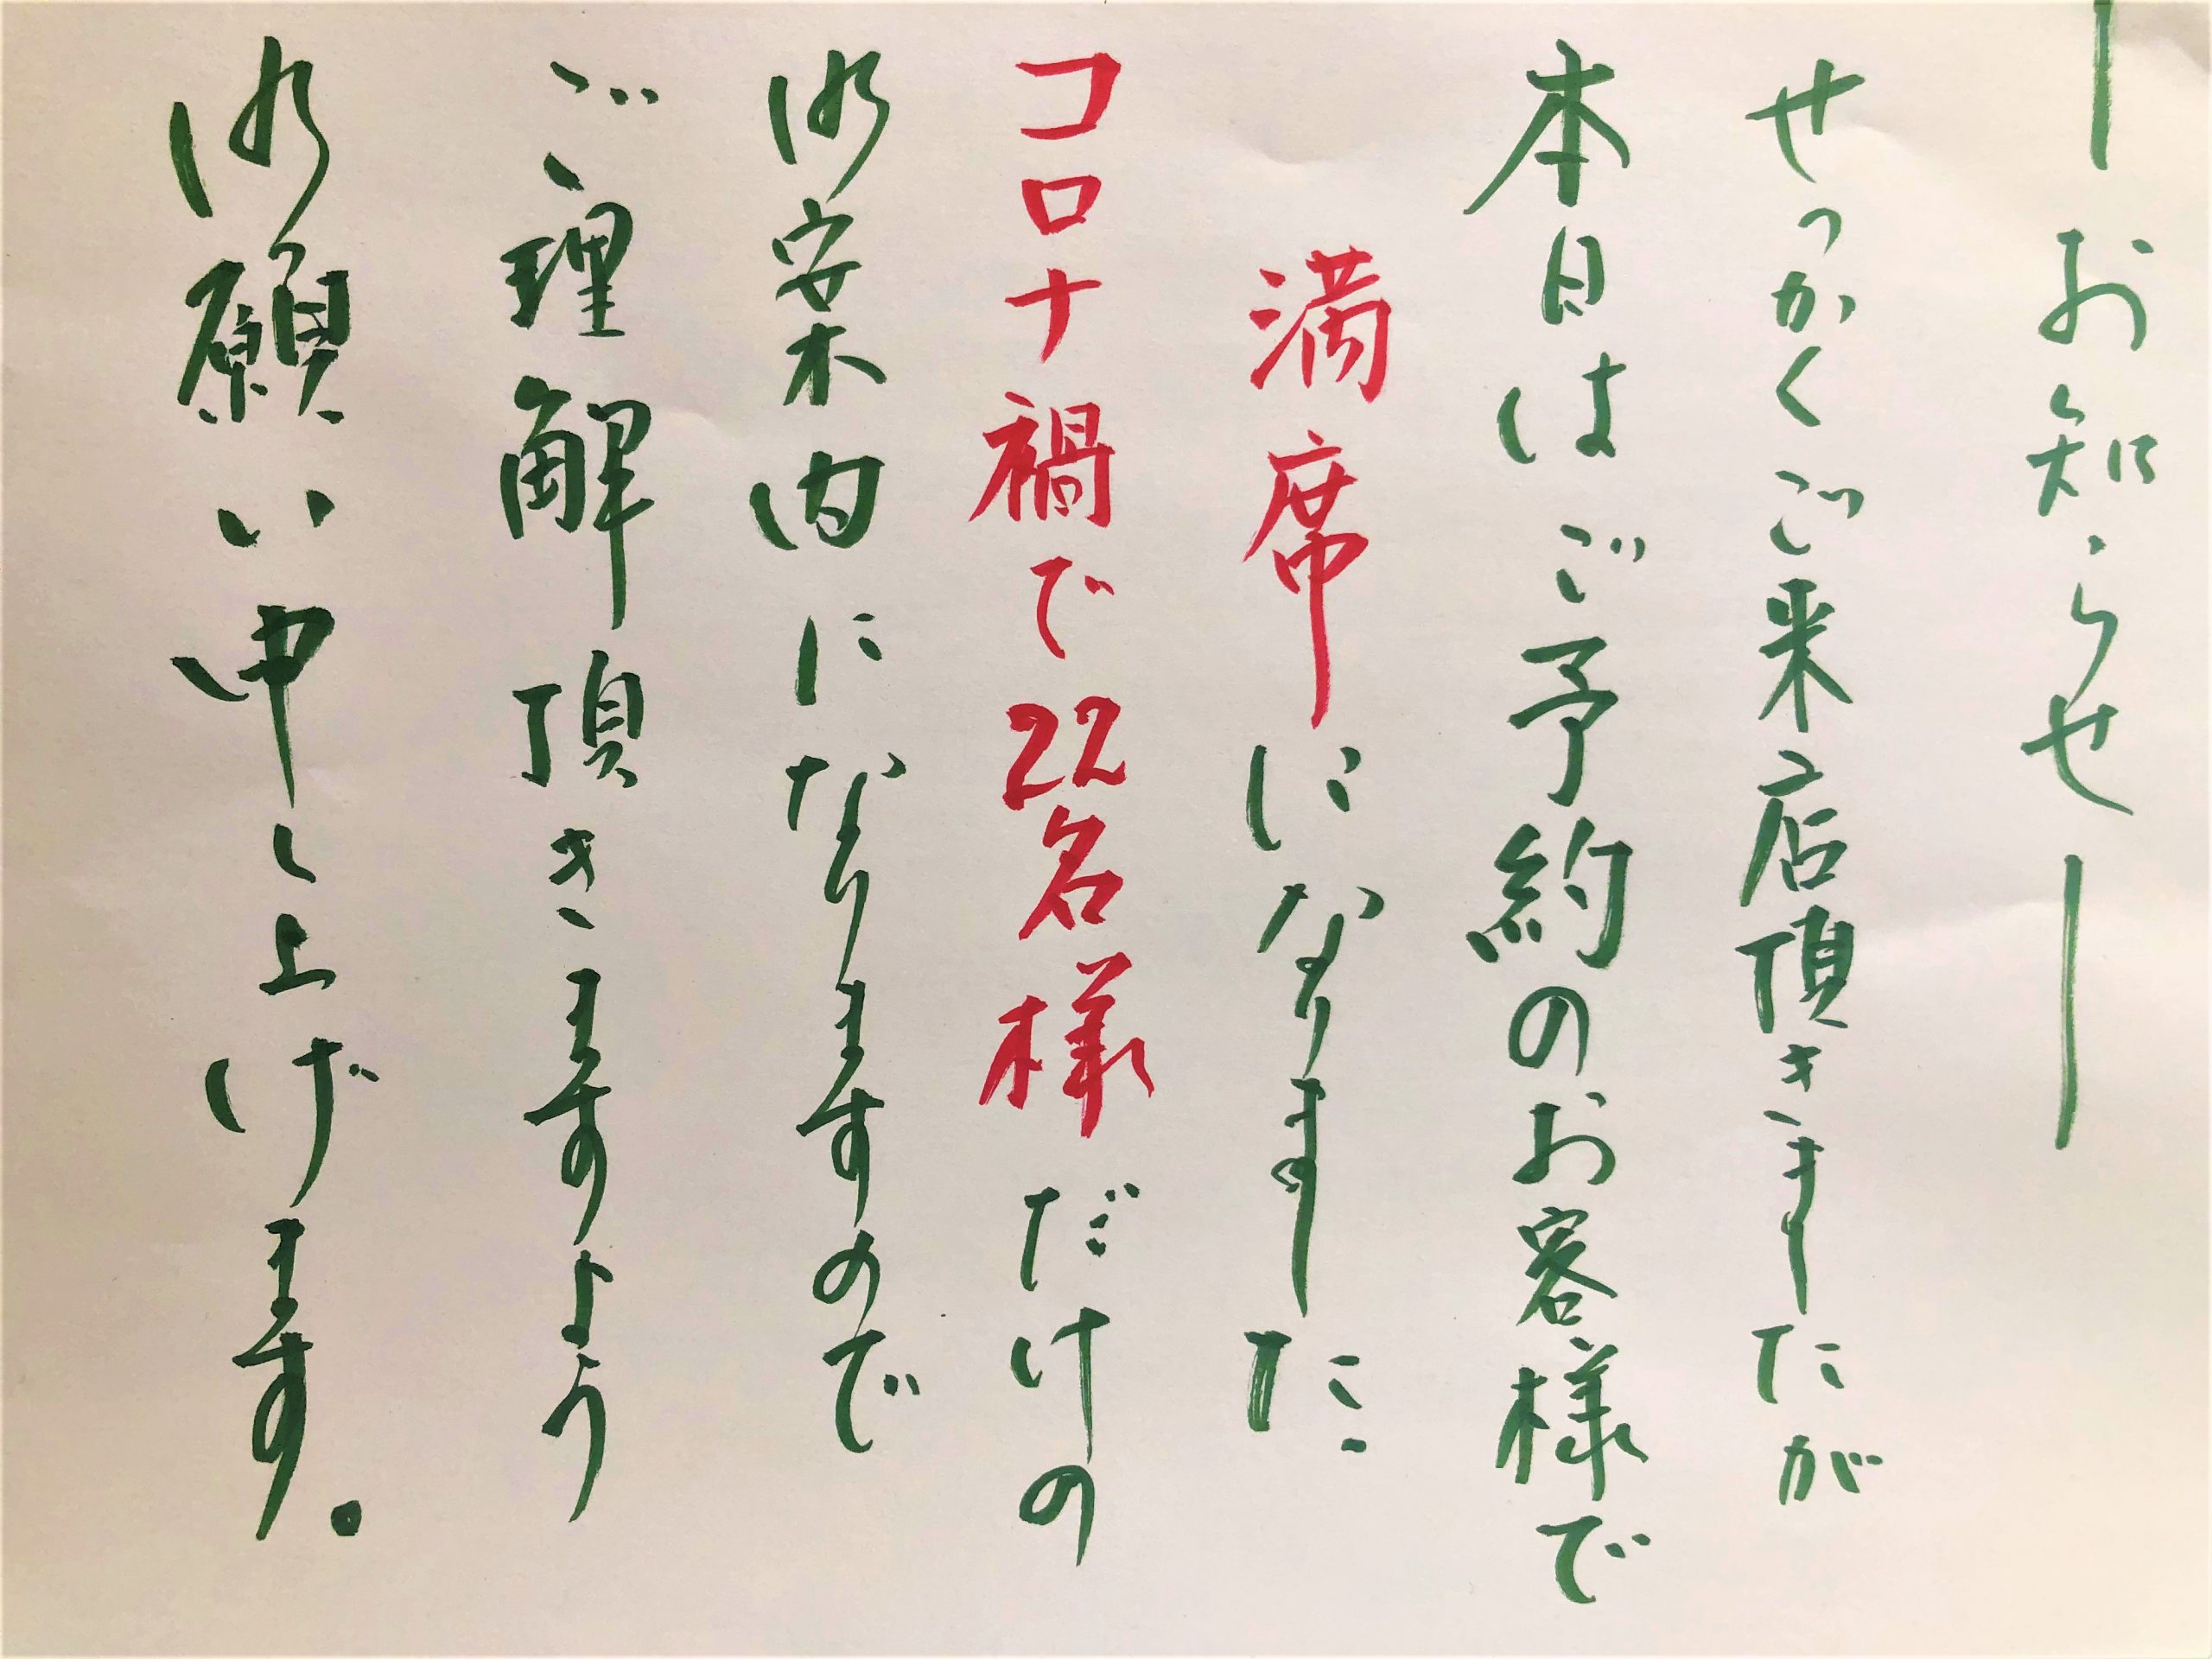 ーお知らせー
せっかくご来店頂きましたが
本日はご予約のお客様で
満席になりました
コロナ禍で22名様だけの
御案内になりますので
ご理解頂きますよう
御願い申し上げます。